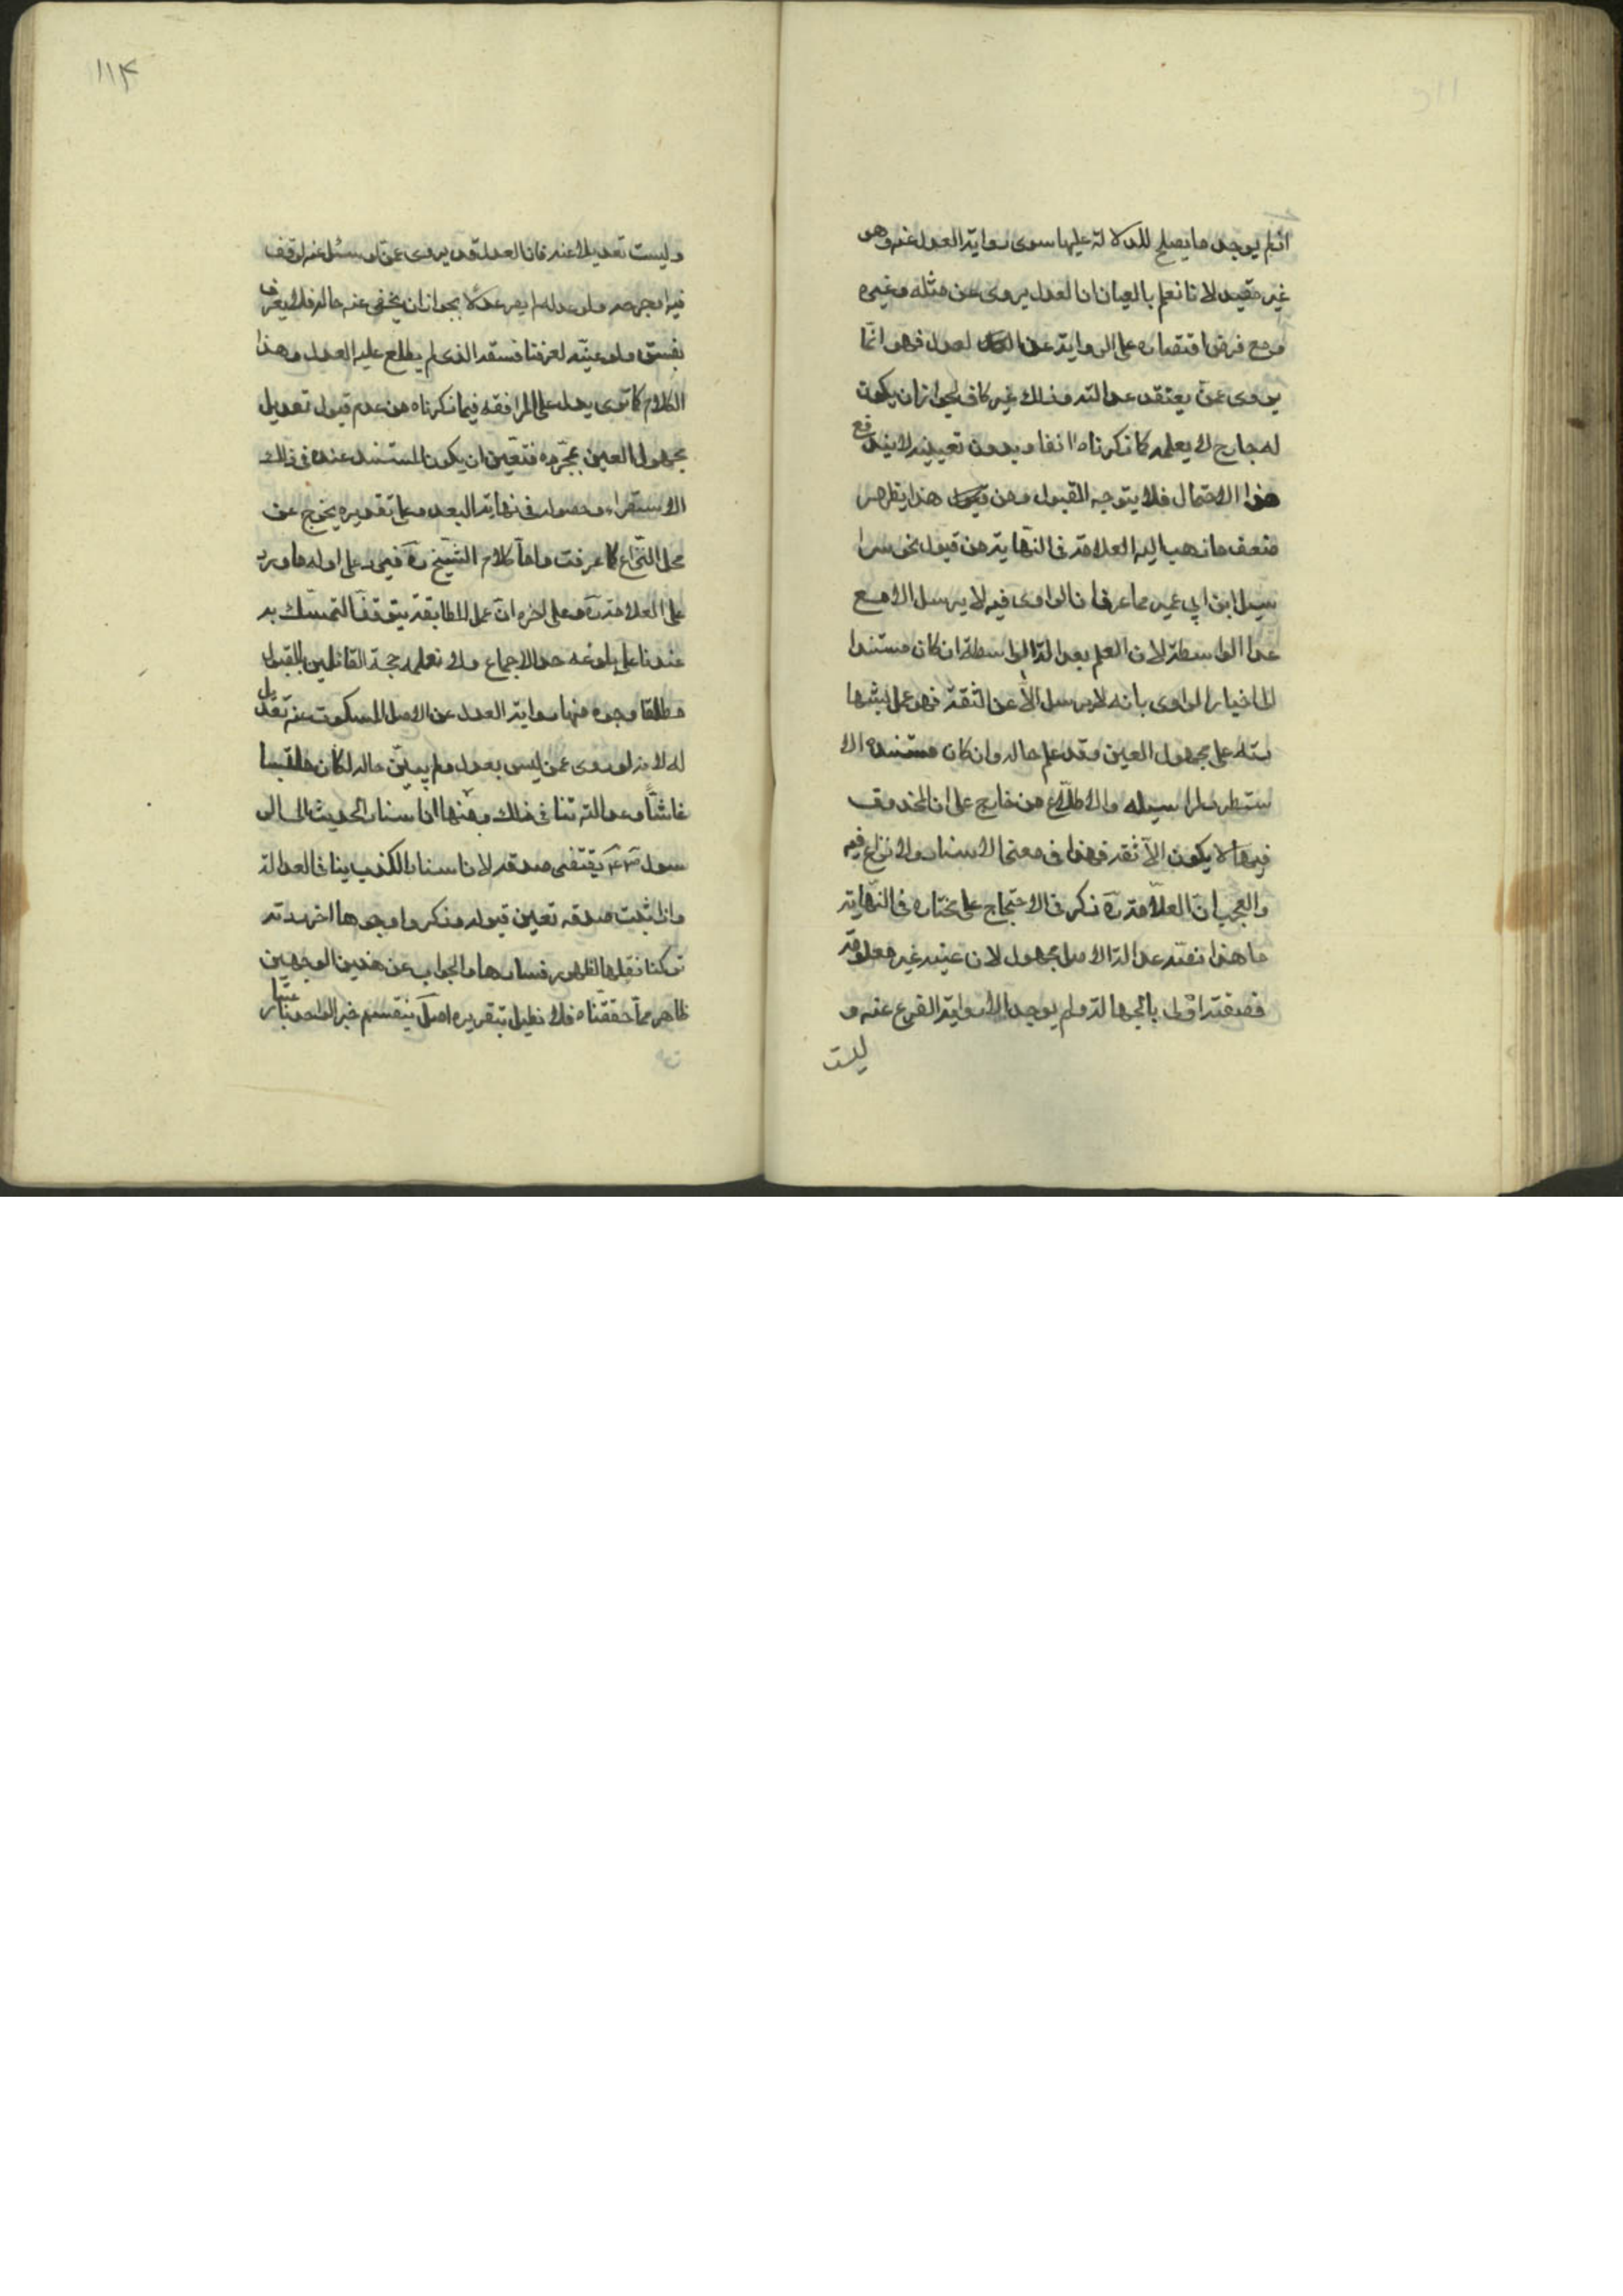 اذ لم يوجد ما يصلح للدلالة عليها سوى رواية العدل عنه وهو
غير مفيد لانا نعلم بالعيان ان العدل يروى عن مثله وغيره
ومع فرض اقتصاره على الرواية عن العدل فهو انّما
يروى عمّن يعتقد عدالته وذلك غير كاف لجواز ان يكون
له جارح لا يعلمه كما ذكرناه انفا وبدون تعيينه لا يندفع
هذا الاحتمال فلا يتوجه القبول ومن هذا يظهر
ضعف ما ذهب اليه العلامة فى النهاية من قبول نحو مرا
سيل ابن ابي عمير مما عرف ان الراوى فيه لا يرسل الا مع
عدالة الواسطة لان العلم بعدالة الواسطة ان كان مستندا
الى اخبار الراوى بانه لا يرسل الّا عن الثقة فهو عمل بشها
دته على مجهول العين وقد علم حاله وان كان مستنده الا
ستقراء لمراسيله والاطلاع من خارج على ان المحذوف
فيها لا يكون الّا ثقة فهذا فى معنى الاسناد ولا نزاع فيه
والعجب انّ العلّامة رَه ذكر فى الاحتجاج على مختاره فى النّهاية
ما هذا نصّه عدالة الاصل مجهولة لان عينه غير معلومة
فصفته اولى بالجهالة ولم يوجد الا رواية الفرع عنه و
ليست
١١٤
وليست تعديلا عنه فان العدل قد يروى عمّن لو سئل عنه لتوقف
فيه او جرحه ولو عدله لم يصر عدلا بجواز ان يخفى عنه حاله فلا يعرفه
بفسق ولو عيّنه لعرفنا فسقه الذى لم يطلع عليه العدل وهذا
الكلام كما ترى يدل على الموافقة فيما ذكرناه من عدم قبول تعديل
مجهول العين بمجرده فتعيّن ان يكون المستند عنده فى ذلك
الاستقراء وحصوله فى نهاية البعد وعلى تقديره يخرج عن
محل النّزاع كما عرفت واما كلام الشّيخ رَه فيرد على اوله ما ورد
على العلامة رَه وعلى اخره انّ عمل الطايفة يتوقف التمسّك به
عندنا على بلوغه حد الاجماع ولا نعلمه حجة القائلين بالقبول
مطلقا وجوه منها رواية العدل عن الاصل المسكوت عنه تعديل
له لانه لو روى عمن ليس بعدل ولم يبيّن حاله لكان ملبسا
غاشّا وعدالته تنافى ذلك ومنها انّ اسناد الحديث الى الر
سول ص يقتضى صدقه لان اسناد الكذب ينافى العدالة
واذا ثبت صدقه تعين قبوله وذكروا وجوها اخر ردية
تركنا نقلها لظهور فسادها والجواب عن هذين الوجهين
ظاهر مما حققناه فلا نطيل بتقريره اصل ينقسم خبر الواحد باعتبار